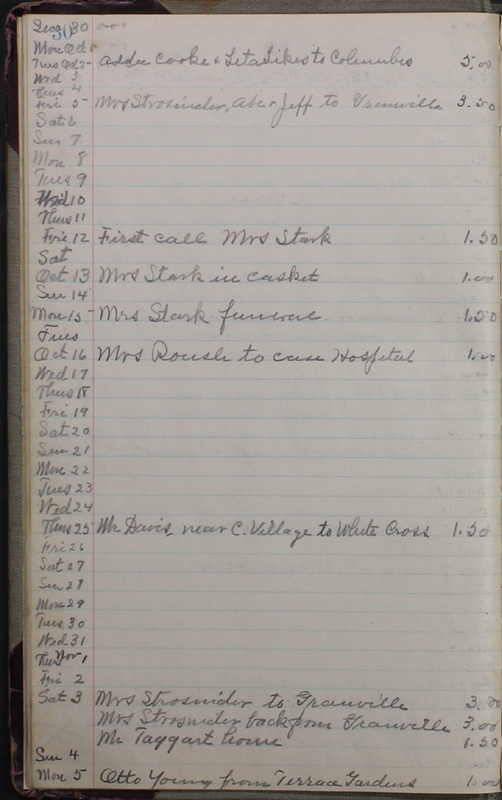 Sun 30
Mon Oct 1
Tues Oct 2 Addie Cooke & Leta Sikes to Columbus 5.00
Wed 3
Thurs 4
Fri 5 Mrs Strosnider, Abe & Jeff to Granville 3.50
Sat 6
Sun 7
Mon 8
Tues 9
Wed 10
Thurs 11
Fri 12 First call Mrs Stark 1.50
Sat
Oct 13 Mrs Stark in casket 1.00
Sun 14
Mon 15 Mrs Stark funeral 1.50
Tues
Oct 16 Mrs Roush to case Hospital 1.00
Wed 17
Thurs 18
Fri 19
Sat 20
Sun 21
Mon 22
Tues 23
Wed 24
Thurs 25 Mr Davis near C. Village to White Cross 1.50
Fri 26
Sat 27
Sun 28
Mon 29
Tues 30
Wed 31
Thurs Nov 1
Fri 2
Sat 3 Mrs Strosnider to Granville 3.00
Mrs Strosnider back from Granville 3.00
Mr Taggart home 1.50
Sun 4
Mon 5 Otto Young from Terrace Gardens 1.00